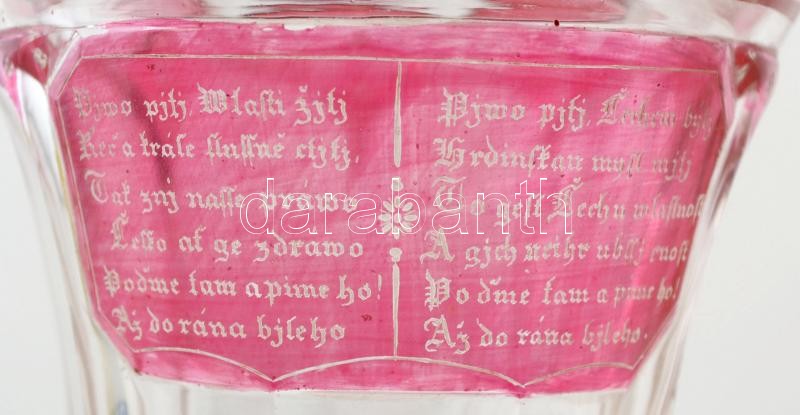 Pjwo pjtj, Wlasti žjtj
Reč a krále slussně ctjtj,
Tak znj nasse práwo
Česko ať ge zdrawo
Poďme tam a pime ho!
Až do rána bjleho
Pjwo pjtj, Čechem býti
Hrdinskau mysl mjtj
To gest Čechu wlastnost
A gjch neihr ubljj cnost
Poďmě tam a pime ho!
Až do rána bjleho.
darabanth